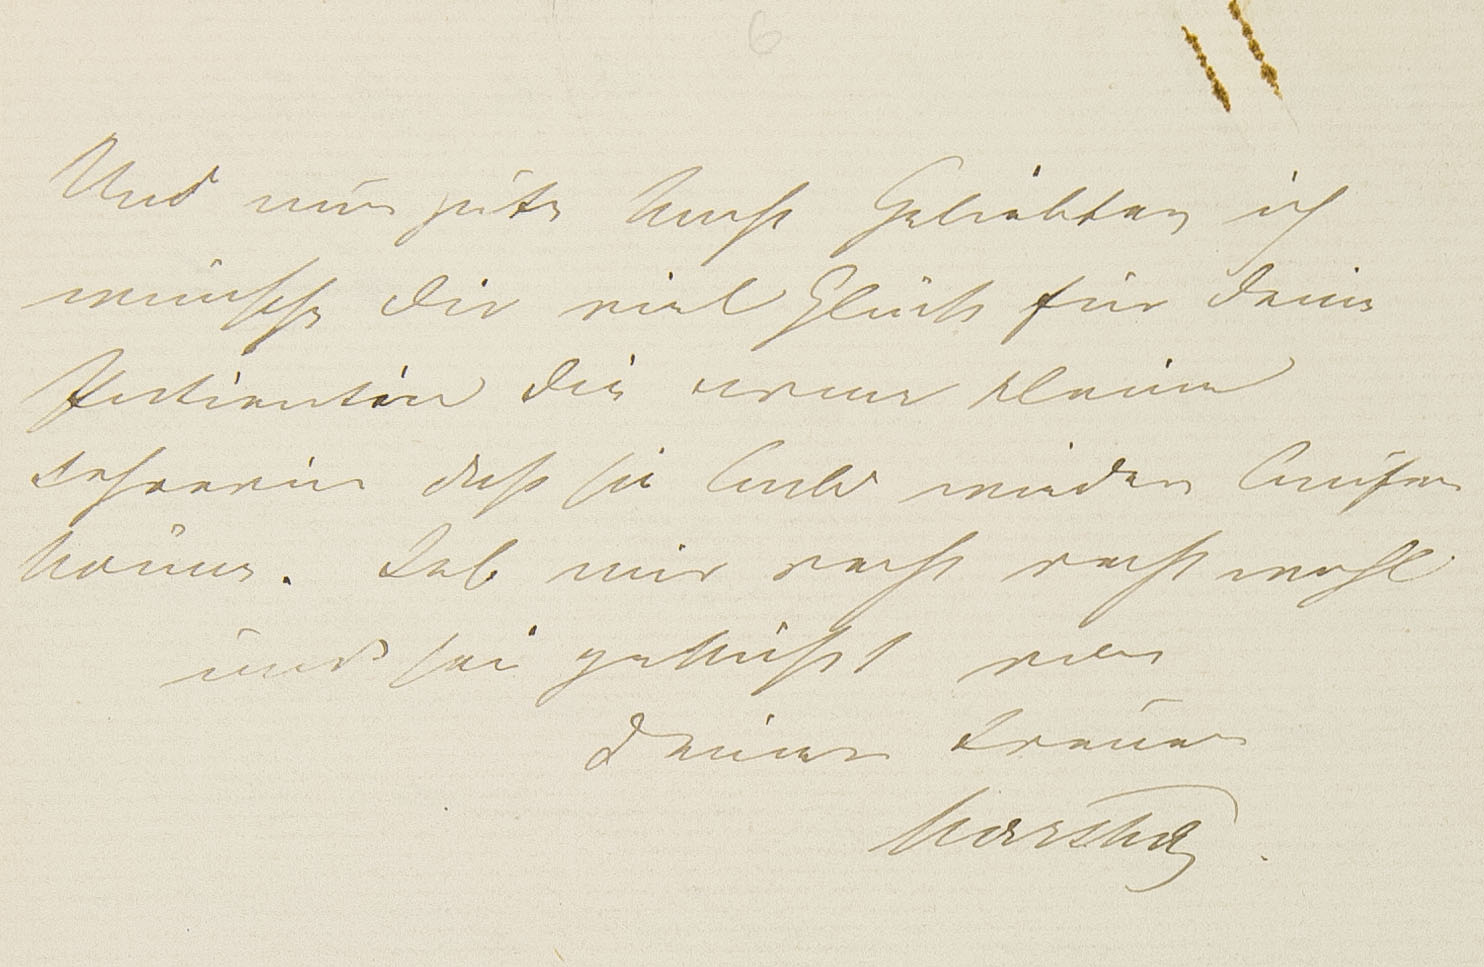 6
Und nun gute Nacht Geliebter, ich
wünsche Dir viel Glück für Deine
Patientin die arme kleine
daß sie bald wieder laufen
könne. Leb mir recht recht wohl
und sei geküßt von
Deiner treuen
Martha